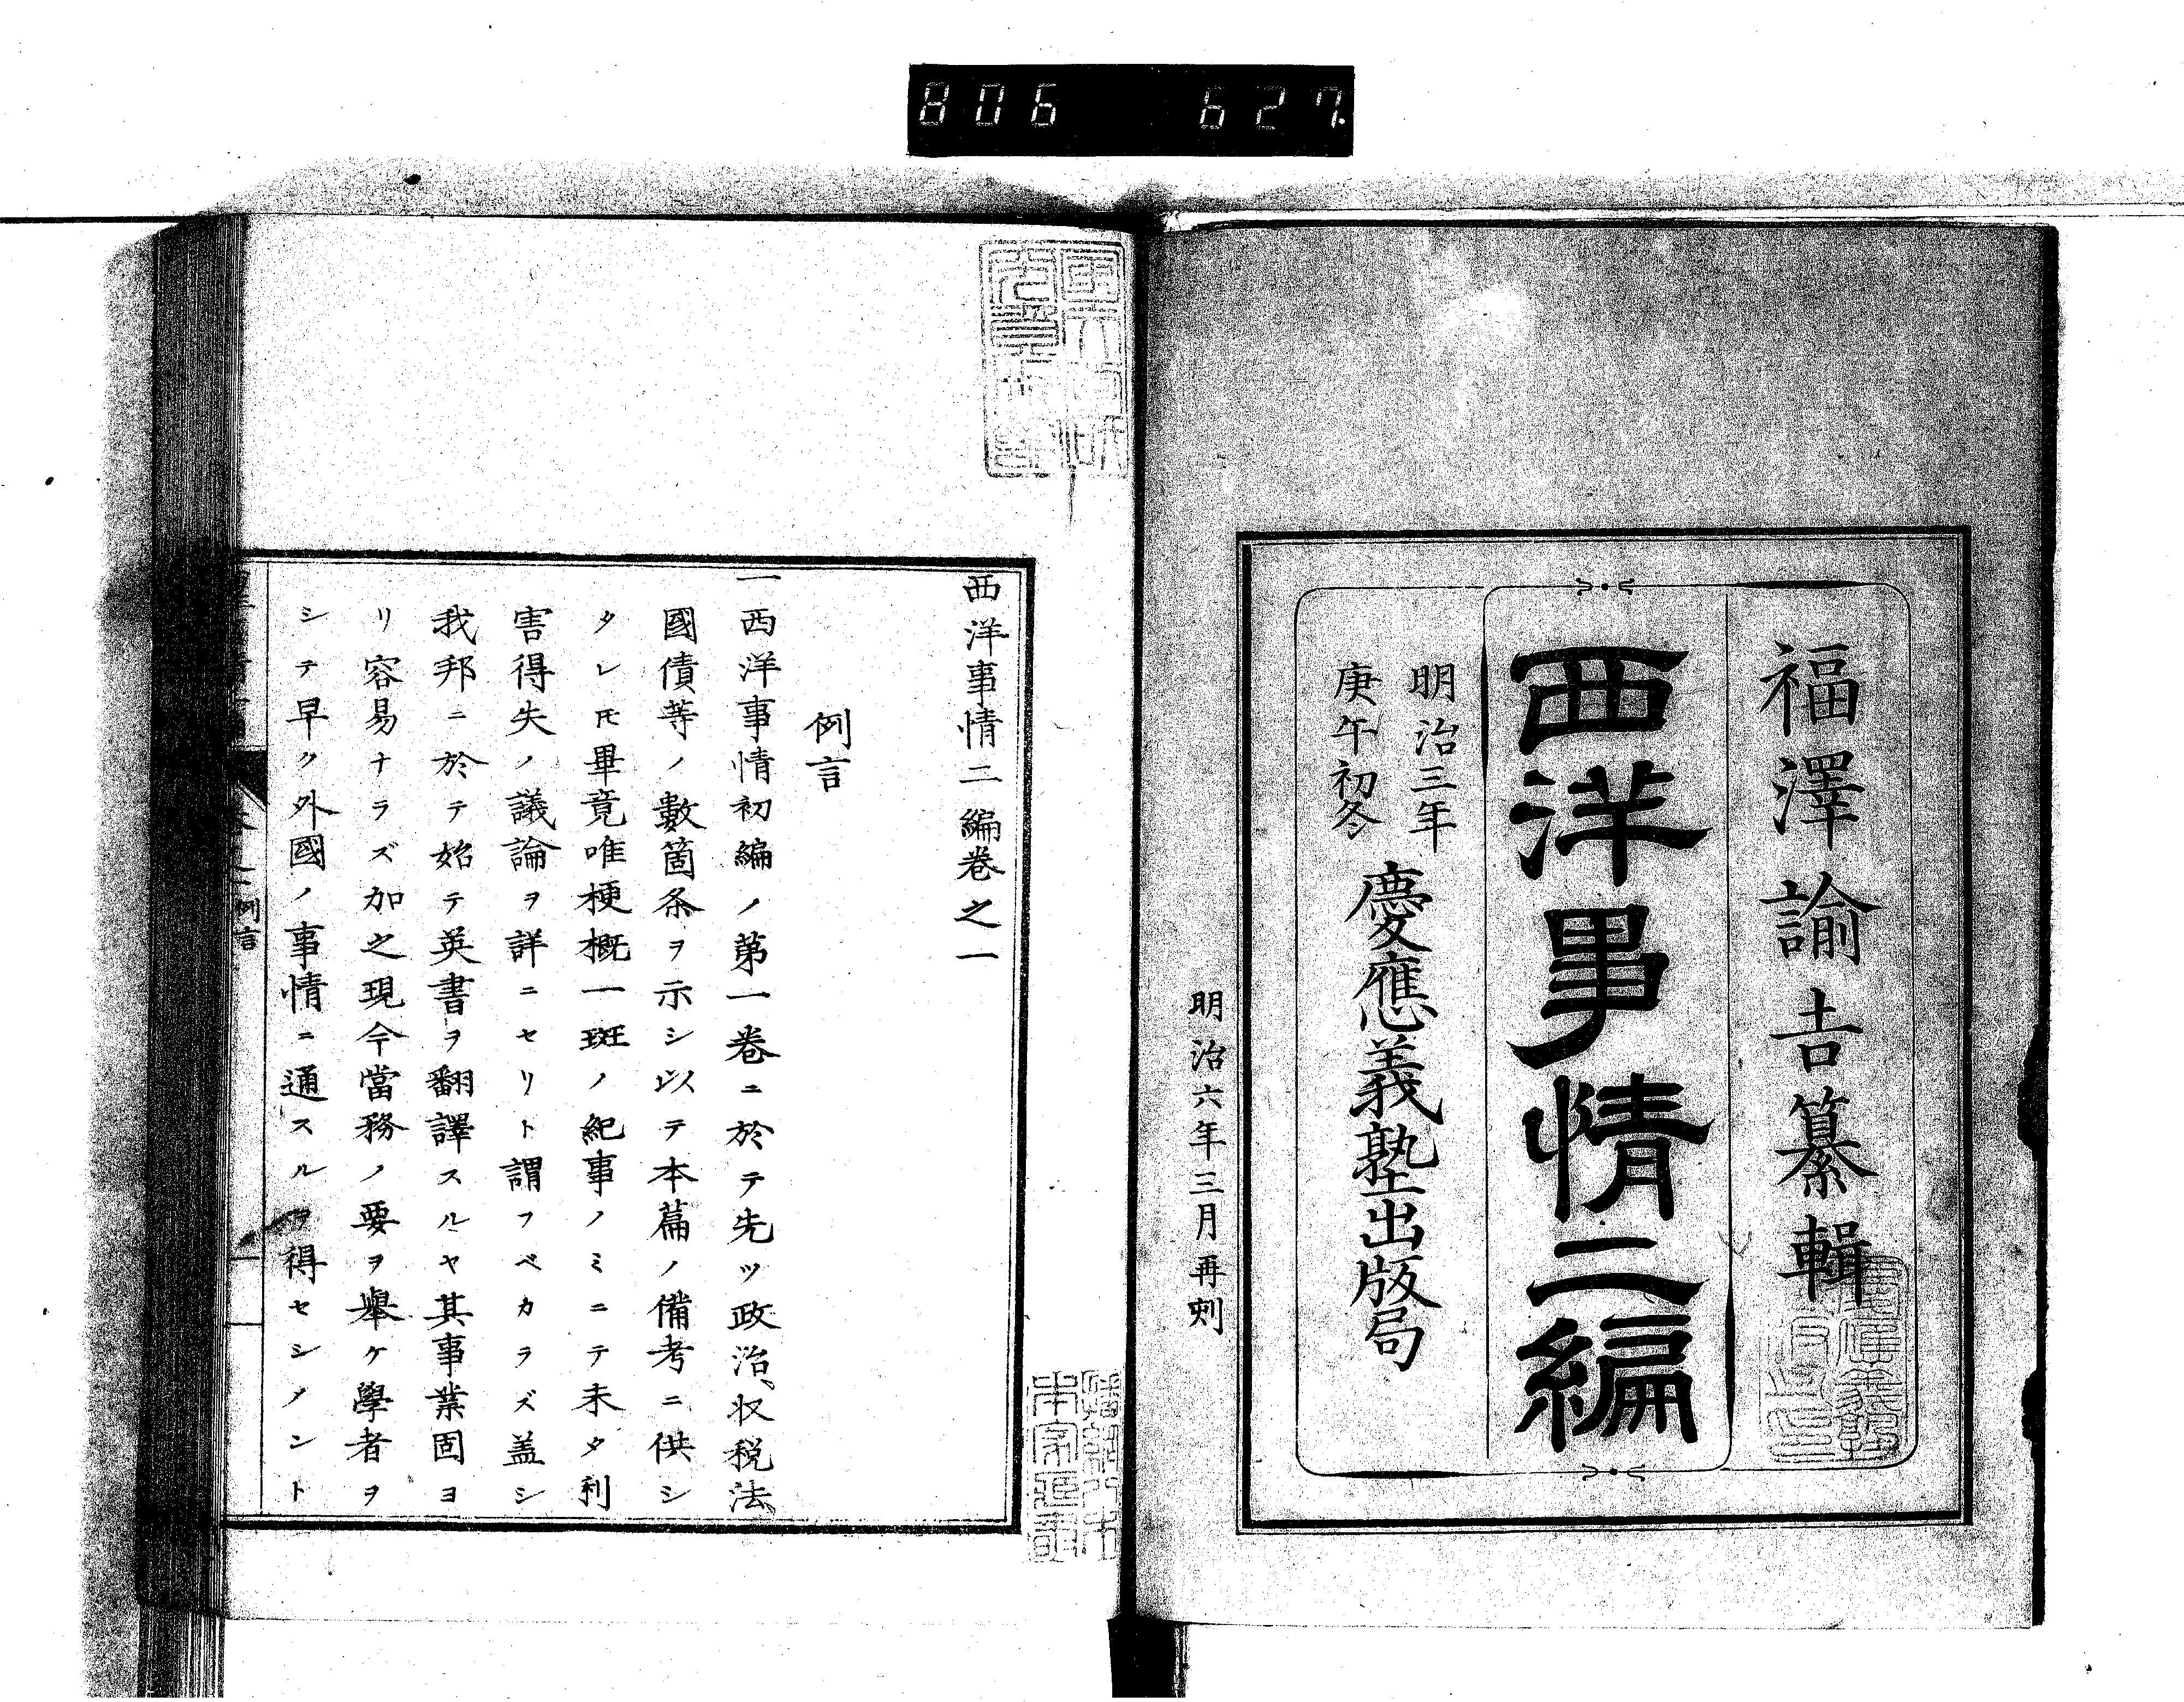 806 627.
福澤諭吉纂輯
西洋事情二編
明治三年
庚午初冬
慶應義塾出版局
明治六年三月再刻
西洋事情二編卷之一
例言
一西洋事情初編ノ第一卷ニ於テ先ツ政治、収税法、
國債等ノ數箇条ヲ示シ以テ本篇ノ備考ニ供シ
タレ𪜈畢竟唯梗概一斑ノ紀事ノミニテ未タ利
害得失ノ議論ヲ詳ニセリト謂フベカラズ盖シ
我邦ニ於テ始テ英書ヲ翻譯スルヤ其事業固ヨ
リ容易ナラズ加之現今當務ノ要ヲ擧ケ學者ヲ
シテ早ク外國ノ事情ニ通スルヲ得セシメント
例言